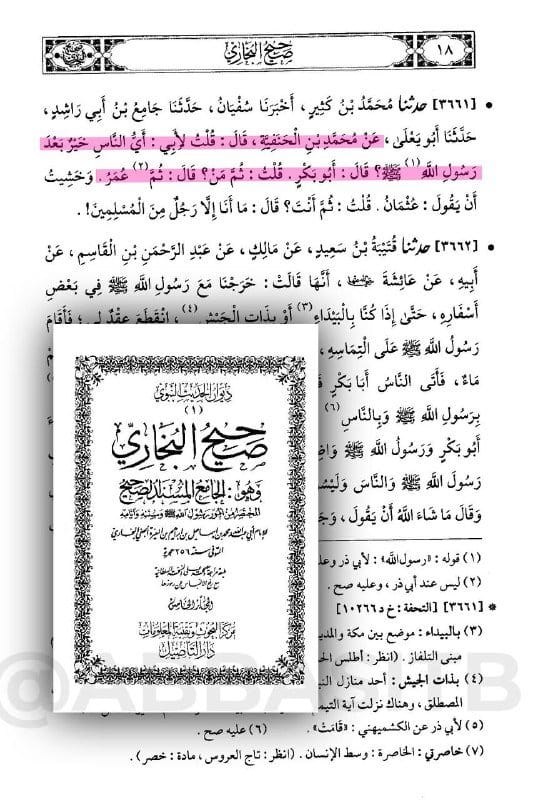 ١٨
صحيح البخاري
• [٣٦٦١] حدثنا مُحَمَّدُ بْنُ كَثِيرٍ، أَخْبَرَنَا سُفْيَانُ، حَدَّثَنَا جَامِعُ بْنُ أَبِي رَاشِدٍ،
حَدَّثَنَا أَبُو يَعْلَى، عَنْ مُحَمَّدِ بْنِ الْحَنَفِيَّةِ، قَالَ: قُلْتُ لِأَبِي: أَيُّ النَّاسِ خَيْرٌ بَعْدَ
رَسُولِ اللَّهِ (١) ﷺ؟ قَالَ: أَبُو بَكْرٍ. قُلْتُ: ثُمَّ مَنْ؟ قَالَ: ثُمَّ (٢) عُمَرُ. وَخَشِيتُ
أَنْ يَقُولَ: عُثْمَانُ. قُلْتُ: ثُمَّ أَنْتَ؟ قَالَ: مَا أَنَا إِلَّا رَجُلٌ مِنَ الْمُسْلِمِينَ!.
• [٣٦٦٢] حدثنا قُتَيْبَةُ بْنُ سَعِيدٍ، عَنْ مَالِكٍ، عَنْ عَبْدِ الرَّحْمَنِ بْنِ الْقَاسِمِ، عَنْ
أَبِيهِ، عَنْ عَائِشَةَ، أَنَّهَا قَالَتْ: خَرَجْنَا مَعَ رَسُولِ اللَّهِ ﷺ فِي بَعْضِ
أَسْفَارِهِ، حَتَّى إِذَا كُنَّا بِالْبَيْدَاءِ (٣) أَوْ بِذَاتِ الْجَيْشِ (٤)، انْقَطَعَ عِقْدٌ لِي؛ فَأَقَامَ
رَسُولُ اللَّهِ ﷺ عَلَى الْتِمَاسِهِ،
مَاءٌ، فَأَتَى النَّاسُ أَبَا بَكْرٍ
بِرَسُولِ اللَّهِ ﷺ وَبِالنَّاسِ (٦)
أَبُو بَكْرٍ وَرَسُولُ اللَّهِ ﷺ
رَسُولَ اللَّهِ ﷺ وَالنَّاسَ وَلَيْسُوا
وَقَالَ مَا شَاءَ اللَّهُ أَنْ يَقُولَ،
ديوان الحديث النبوي
(١)
صحيح البخاري
وهو: الجامع المسند الصحيح
المختصر من أمور رسول الله ﷺ وسننه وأيامه
المجلد الخامس
مركز البحوث وتقنية المعلومات
دار التأصيل
(١) قوله: «رسول الله»: لأبي ذر
(٢) ليس عند أبي ذر، وعليه صح.
* [٣٦٦١] [التحفة: خ د ١٠٢٦٦]
(٣) بالبيداء: موضع بين مكة والمدينة
مبنى التلفاز. (انظر: أطلس
(٤) بذات الجيش: أحد منازل
المصطلق، وهناك نزلت آية التيمم
(٥) لأبي ذر عن الكشميهني: «قَامَتْ».
(٦) عليه صح.
(٧) خاصرتي: الخاصرة: وسط الإنسان. (انظر: تاج العروس، مادة: خصر).